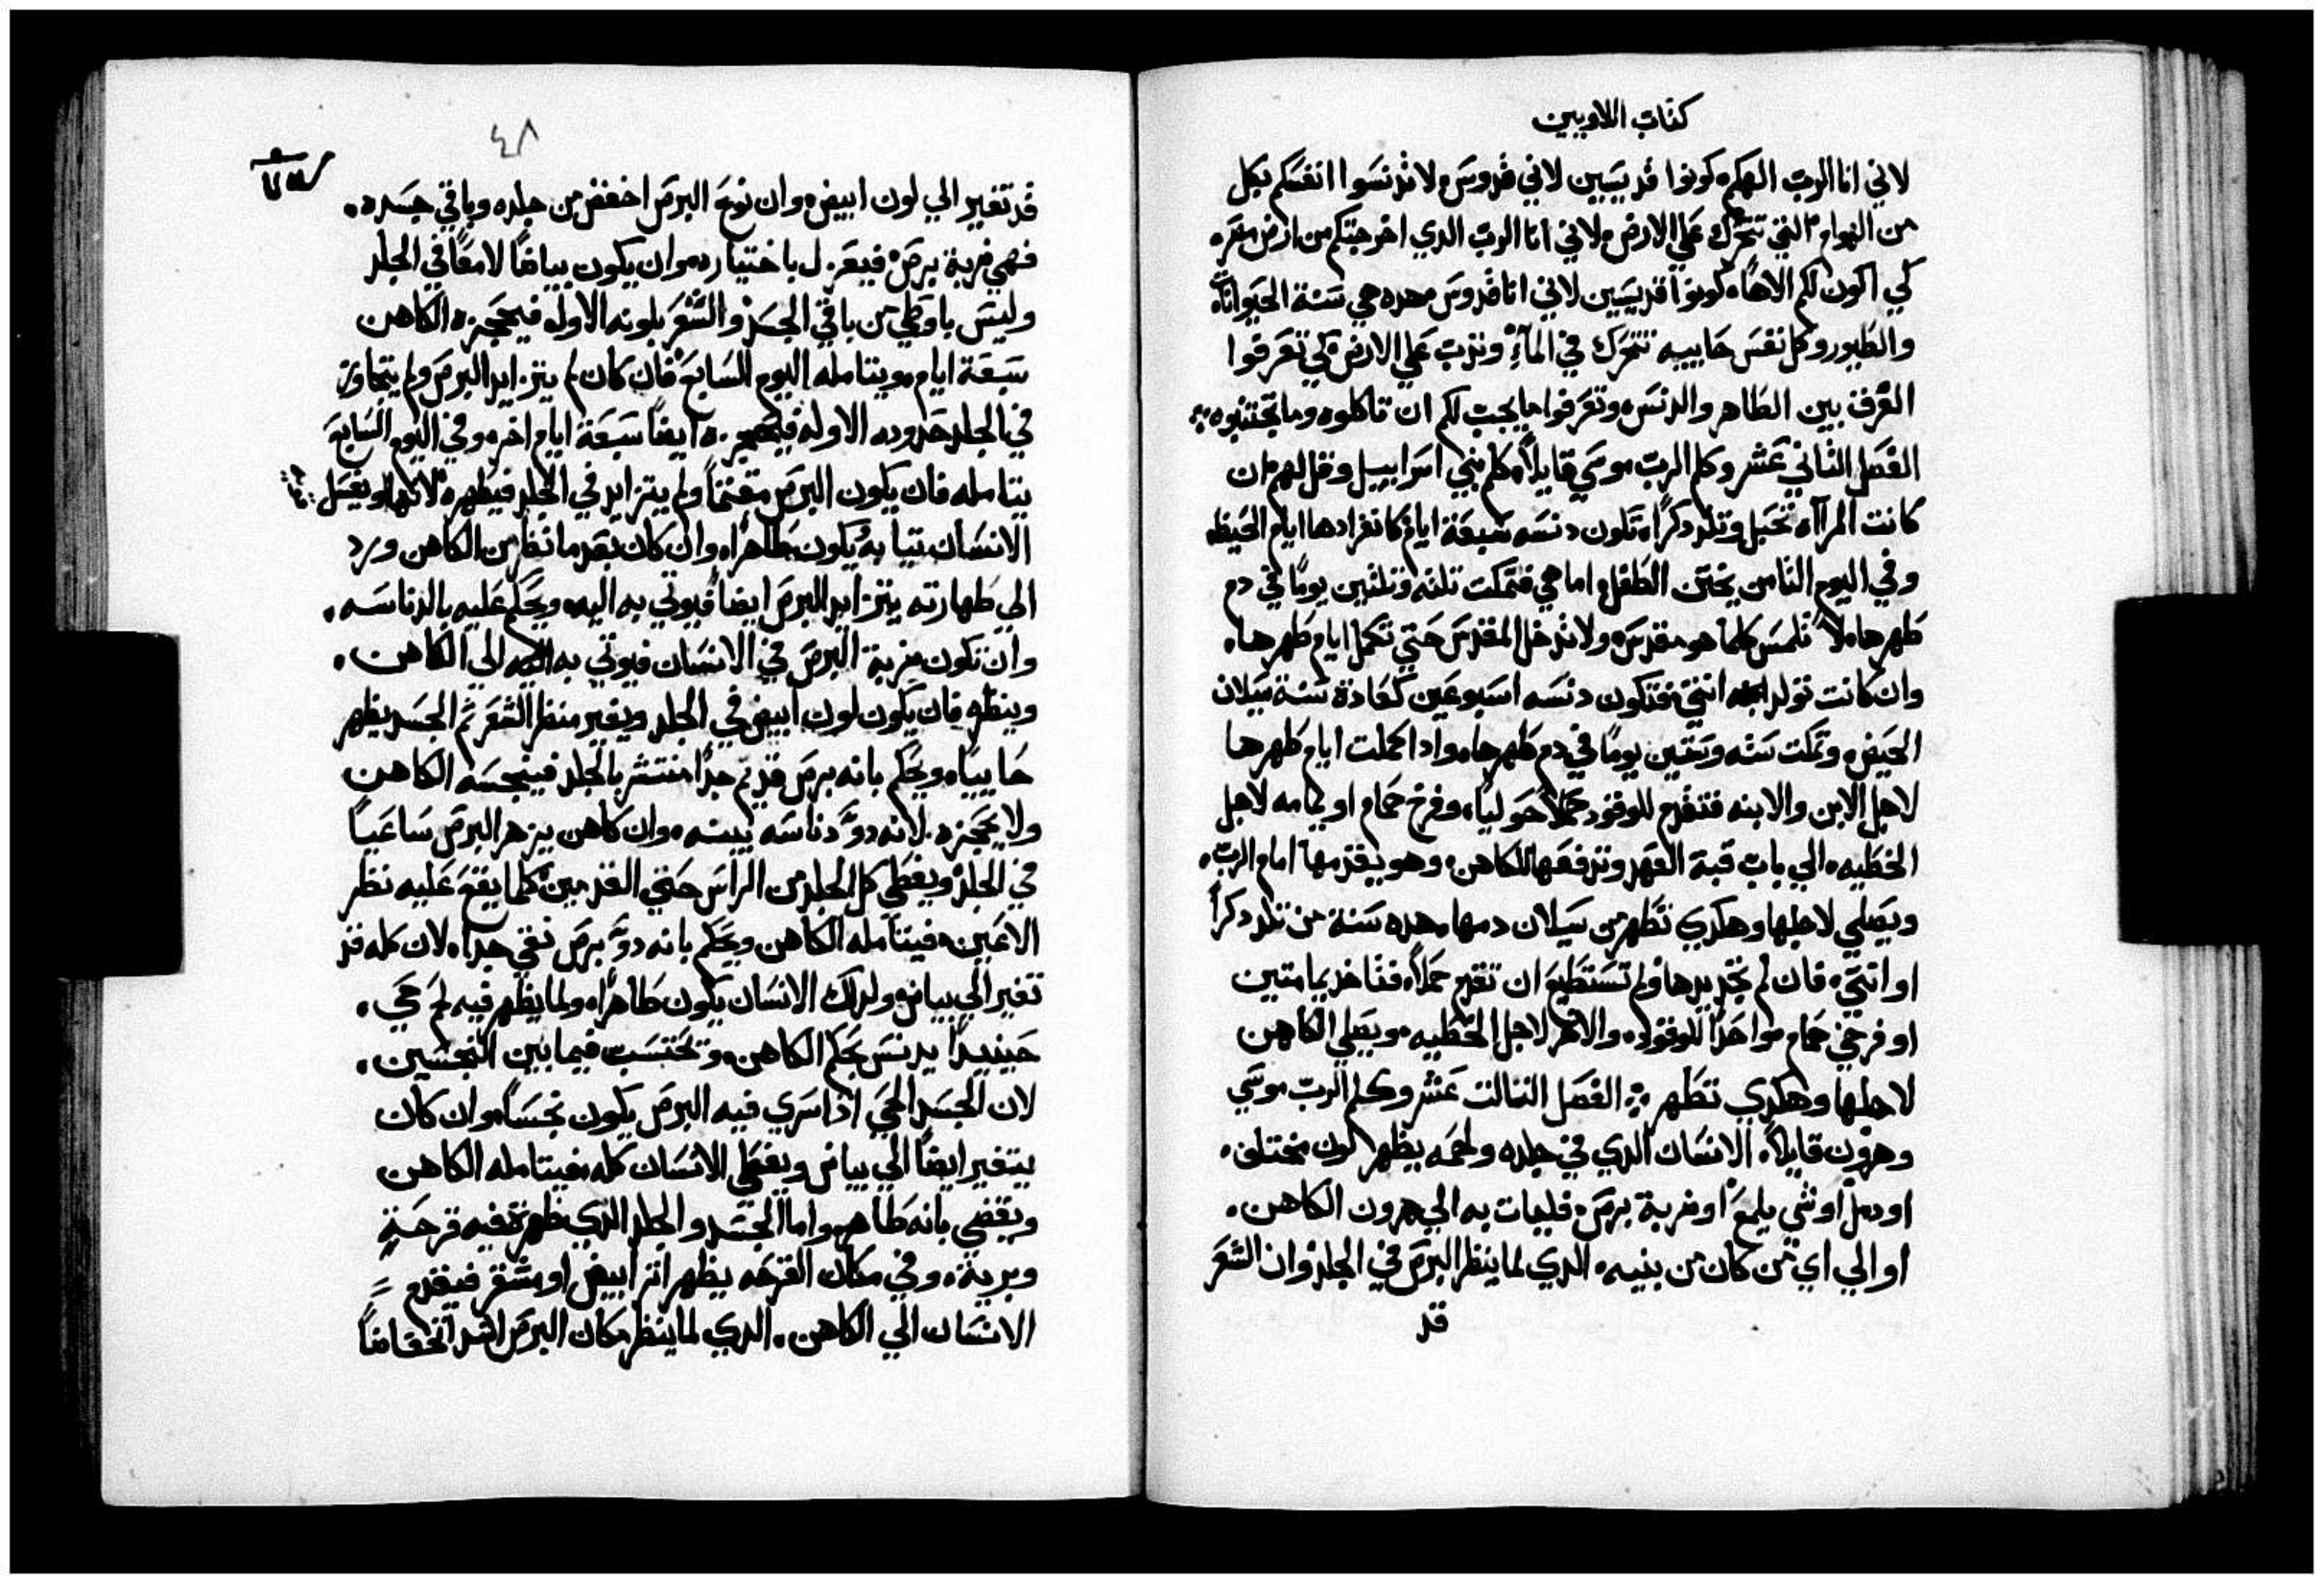 كتاب اللاويين
لاني انا الرب الهكم كونوا قديسين لاني قدوس لا تدنسوا انفسكم بكل
من الهوام التي تتحرك علي الارض لاني انا الرب الدي اخرجتكم من ارض مصر
كي اكون لكم الاهًا كونوا قديسين لاني انا قدوس هده هي سنة الحيوانات
والطيور وكل نفس حاييه تتحرك في المآء وتدب علي الارض لكي تعرفوا
الفرق بين الطاهر والدنس وتعرفوا ما يجب لكم ان تاكلوه وما تجتنبوه
الفصل الثاني عشر وكلم الرب موسي قايلاً كلم بني اسراييل وقل لهم ان
كانت المرآاه تحبل وتلد دكراً تكون دنسه سبعة ايام كانفرادها ايام الحيظ
وفي اليوم الثامن يختن الطفل اما هي فتمكت تلته وتلتين يومًا في دم
طهرها لا تلمس كلما هو مقدس ولا تدخل المقدس حتي تكمل ايام طهرها
وان كانت تولد انتي فتكون دنسه اسبوعين كعادة سنة سيلان
الحيض وتمكت سته وستين يومًا في دم طهرها وادا كملت ايام طهرها
لاجل الابن والابنه فتقدم للوقود حملاً حوليًا وفرخ حمام او يمامه لاجل
الخطيه الي باب قبة العهد وتدفعها للكاهن وهو يقدمها امام الرب
ويصلي لاجلها وهكدي تطهر من سيلان دمها هده سنة من تلد دكراً
او انتي فان لم تجد يدها ولم تستطيع ان تقدم حملاً فتاخد يمامتين
او فرخي حمام واحداً للوقود والاخر لاجل الخطيه ويصلي الكاهن
لاجلها وهكدي تطهر الفصل التالت عشر وكلم الرب موسي
وهرون قايلاً الانسان الدي في جلده ولحمه يظهر لون مختلف
او دمل او شي يلمع او ضربة برص فليات به الي هرون الكاهن
او الي اي من كان من بنيه الدي لما ينظر البرص في الجلد وان الشعر
قد
٤٨
قد تغير الي لون ابيض وان نوع البرص اخفض من جلده وباقي جسده
فهي ضربة برص فيعزل باختياره وان يكون بياضًا لامعًا في الجلد
وليس باوطي من باقي الجسد والشعر بلونه الاول فيحجزه الكاهن
سبعة ايام ويتامله اليوم السابع فان كان لم يتزايد البرص ولم يتجاوز
في الجلد حدوده الاوله فيحجزه ايضًا سبعة ايام اخر وفي اليوم السابع
يتامله فان يكون البرص مقتمًا ولم يتزايد في الجلد فيطهره ويغسل
الانسان تيابه يكون طاهراً وان كان بعدما نظر من الكاهن ورد
الي طهارته يتزايد البرص ايضًا فيوتي به اليه ويحكم عليه بالدناسه
وان تكون ضربة البرص في الانسان فيوتي به الي الكاهن
وينظره فان يكون لون ابيض في الجلد ويغير منظر الشعر تم الجسد يظهر
حاييًا ويحكم بانه برص قديم جدًا منتشر بالجلد فينجسه الكاهن
ولا يحجزه لانه دو دناسه بينه وان كاهن يزهر البرص ساعيًا
في الجلد ويغطي كل الجلد من الراس حتي القدمين كلما يقع عليه نظر
الاعين فيتامله الكاهن ويحكم بانه دو برص نقي جداً لان كله قد
تغير الي بياض ولدلك الانسان يكون طاهراً ولما يظهر فيه لحم حي
حينيداً يدنس بحكم الكاهن وتحتسب فيما بين النجسين
لان الجسد الحي اذا سري فيه البرص يكون نجسًا وان كان
يتغير ايضًا الي بياض ويغطي الانسان كله فيتامله الكاهن
ويقضي بانه طاهر واما الجسد والجلد الدي ظهرة فيه قرحةٍ
وبرية وفي مكان القرحه يظهر اتر ابيض او مشقر فيقدم
الانسان الي الكاهن الدي لما ينظر مكان البرص اشد انخفاضًا